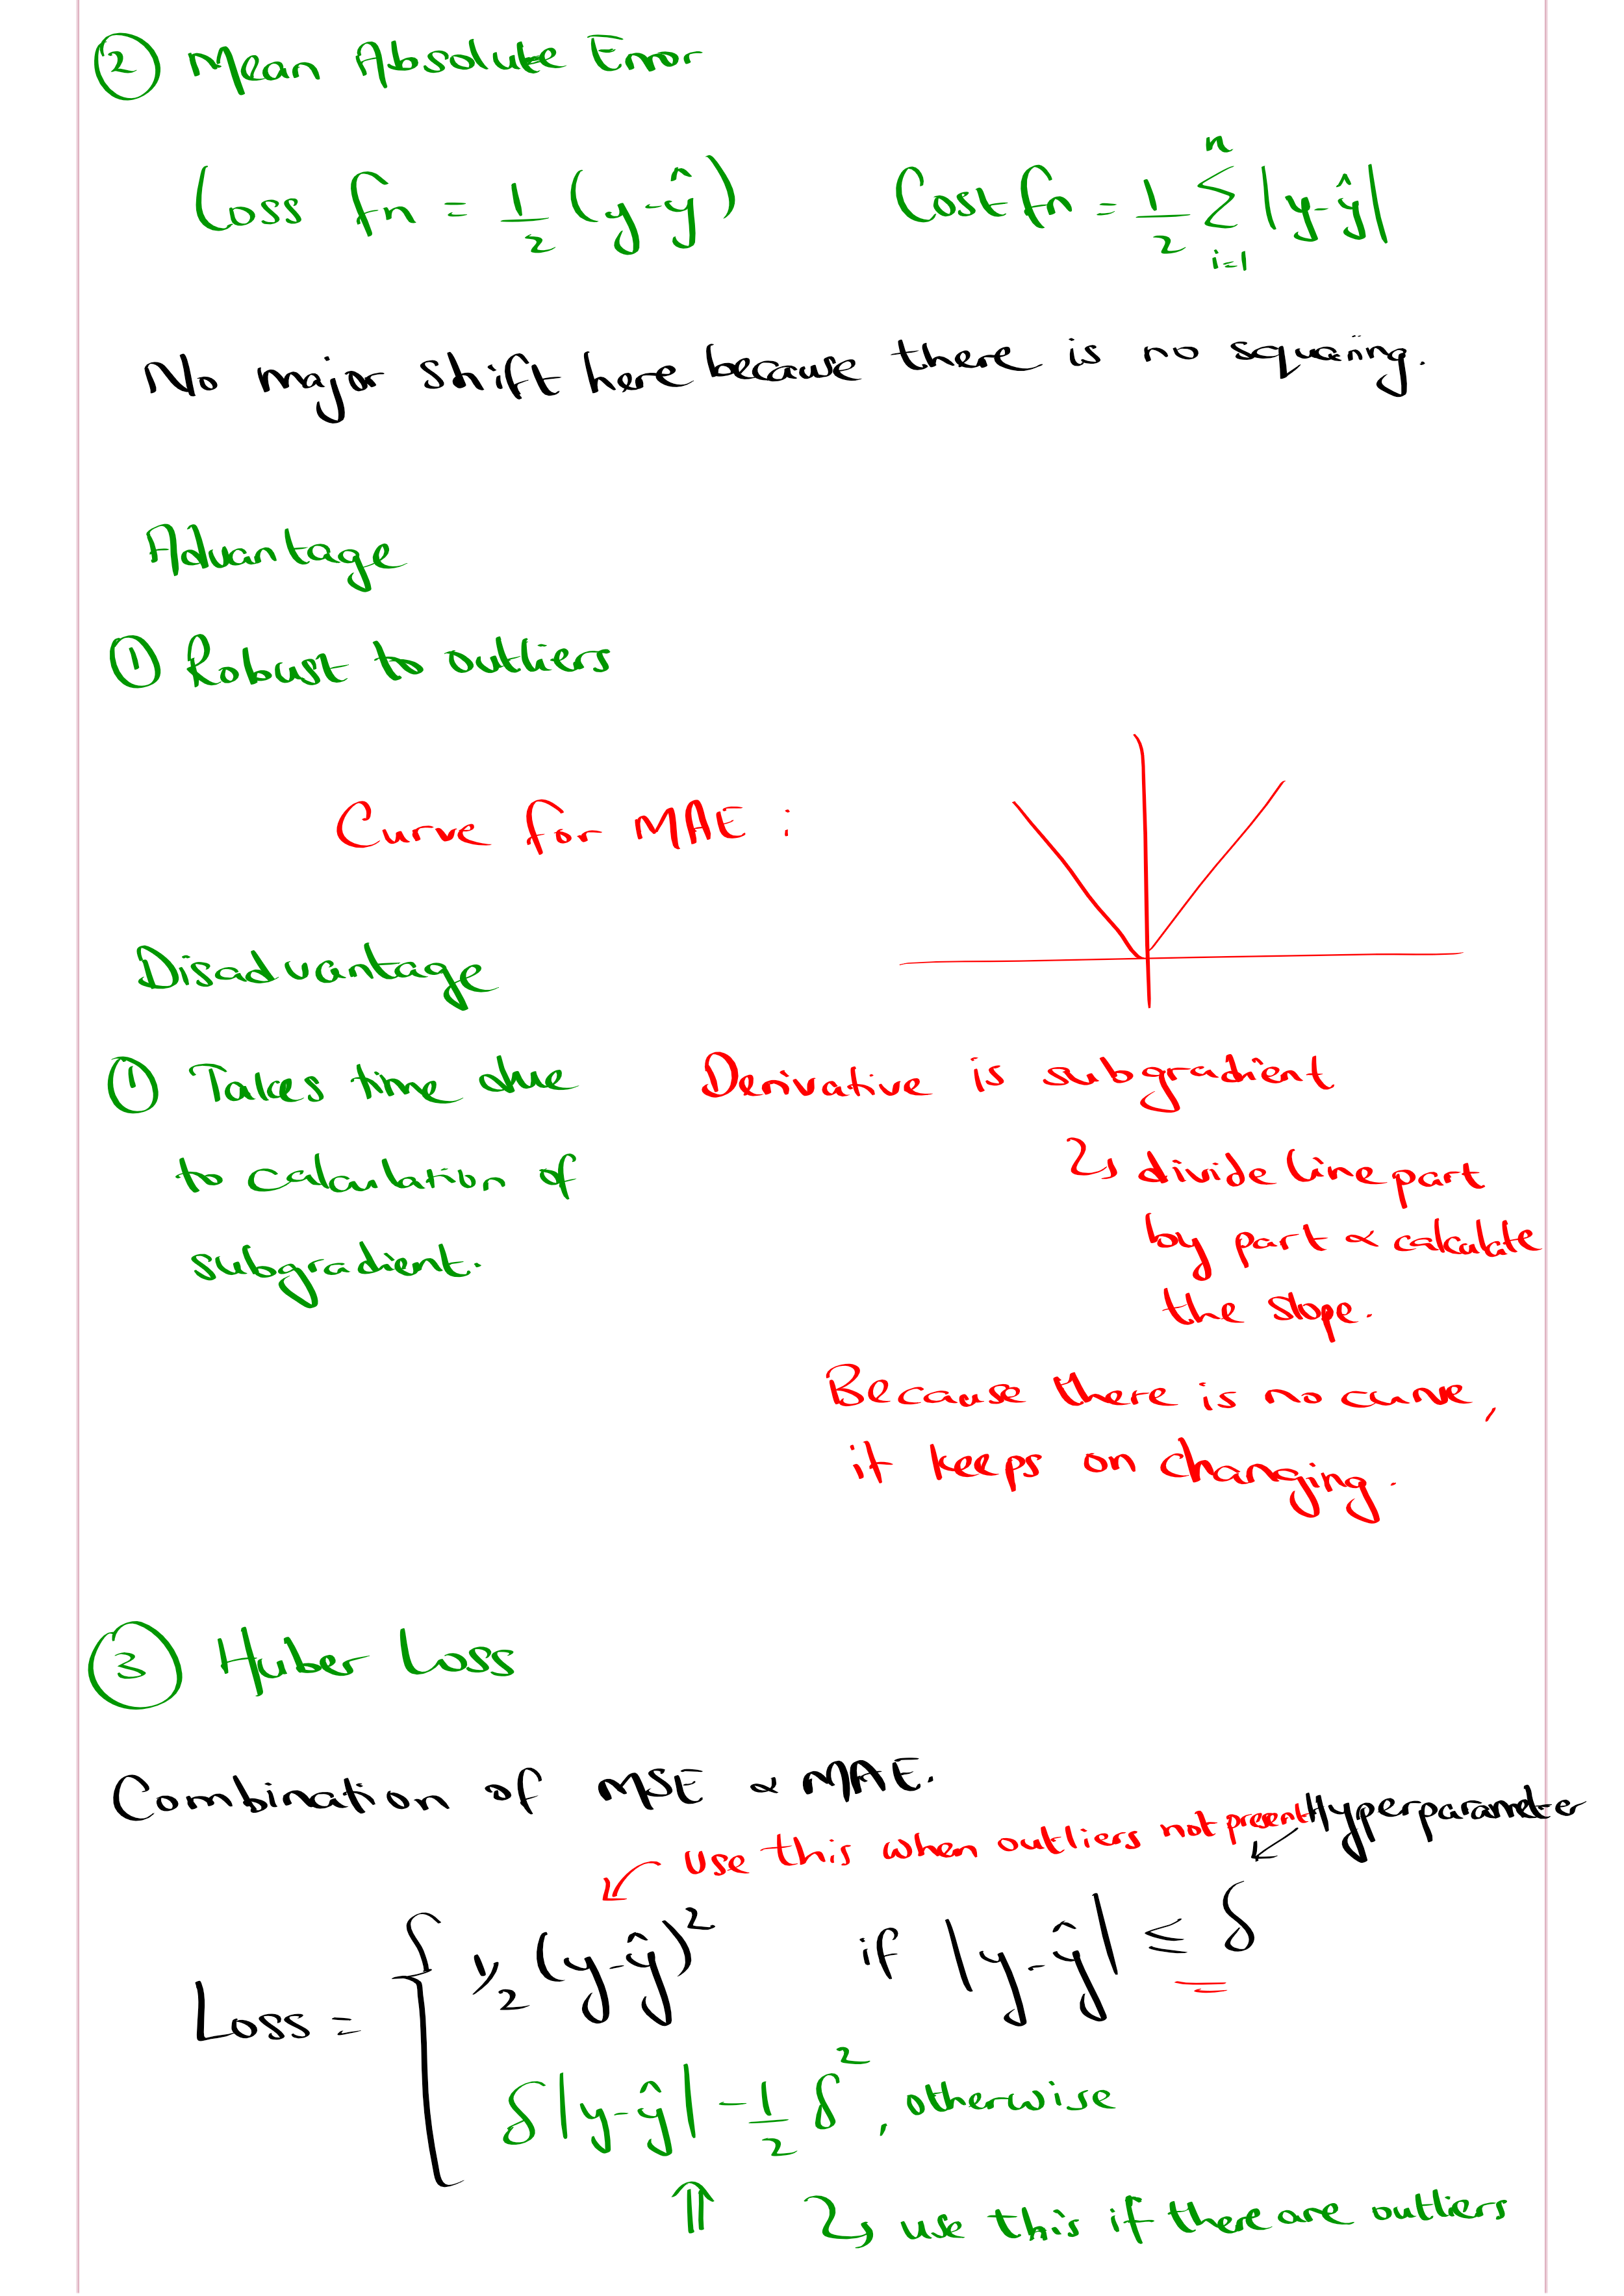 ② Mean Absolute Error
Loss fn = 1/2 (y-ŷ)    Cost fn = 1/2 Σ i=1 n |y-ŷ|
No major shift here because there is no squaring.
Advantage
① Robust to outliers
Curve for MAE :
Disadvantage
① Takes time due
to calculation of
subgradient.
Derivative is subgradient
↳ divide line part
by part & calculate
the slope.
Because there is no curve,
it keeps on changing.
③ Huber Loss
Combination of MSE & MAE.
Use this when outliers not present
Hyperparameter
Loss = { 1/2 (y-ŷ)² if |y-ŷ| ≤ δ
δ|y-ŷ| - 1/2 δ², otherwise
⇑ ↳ use this if there are outliers